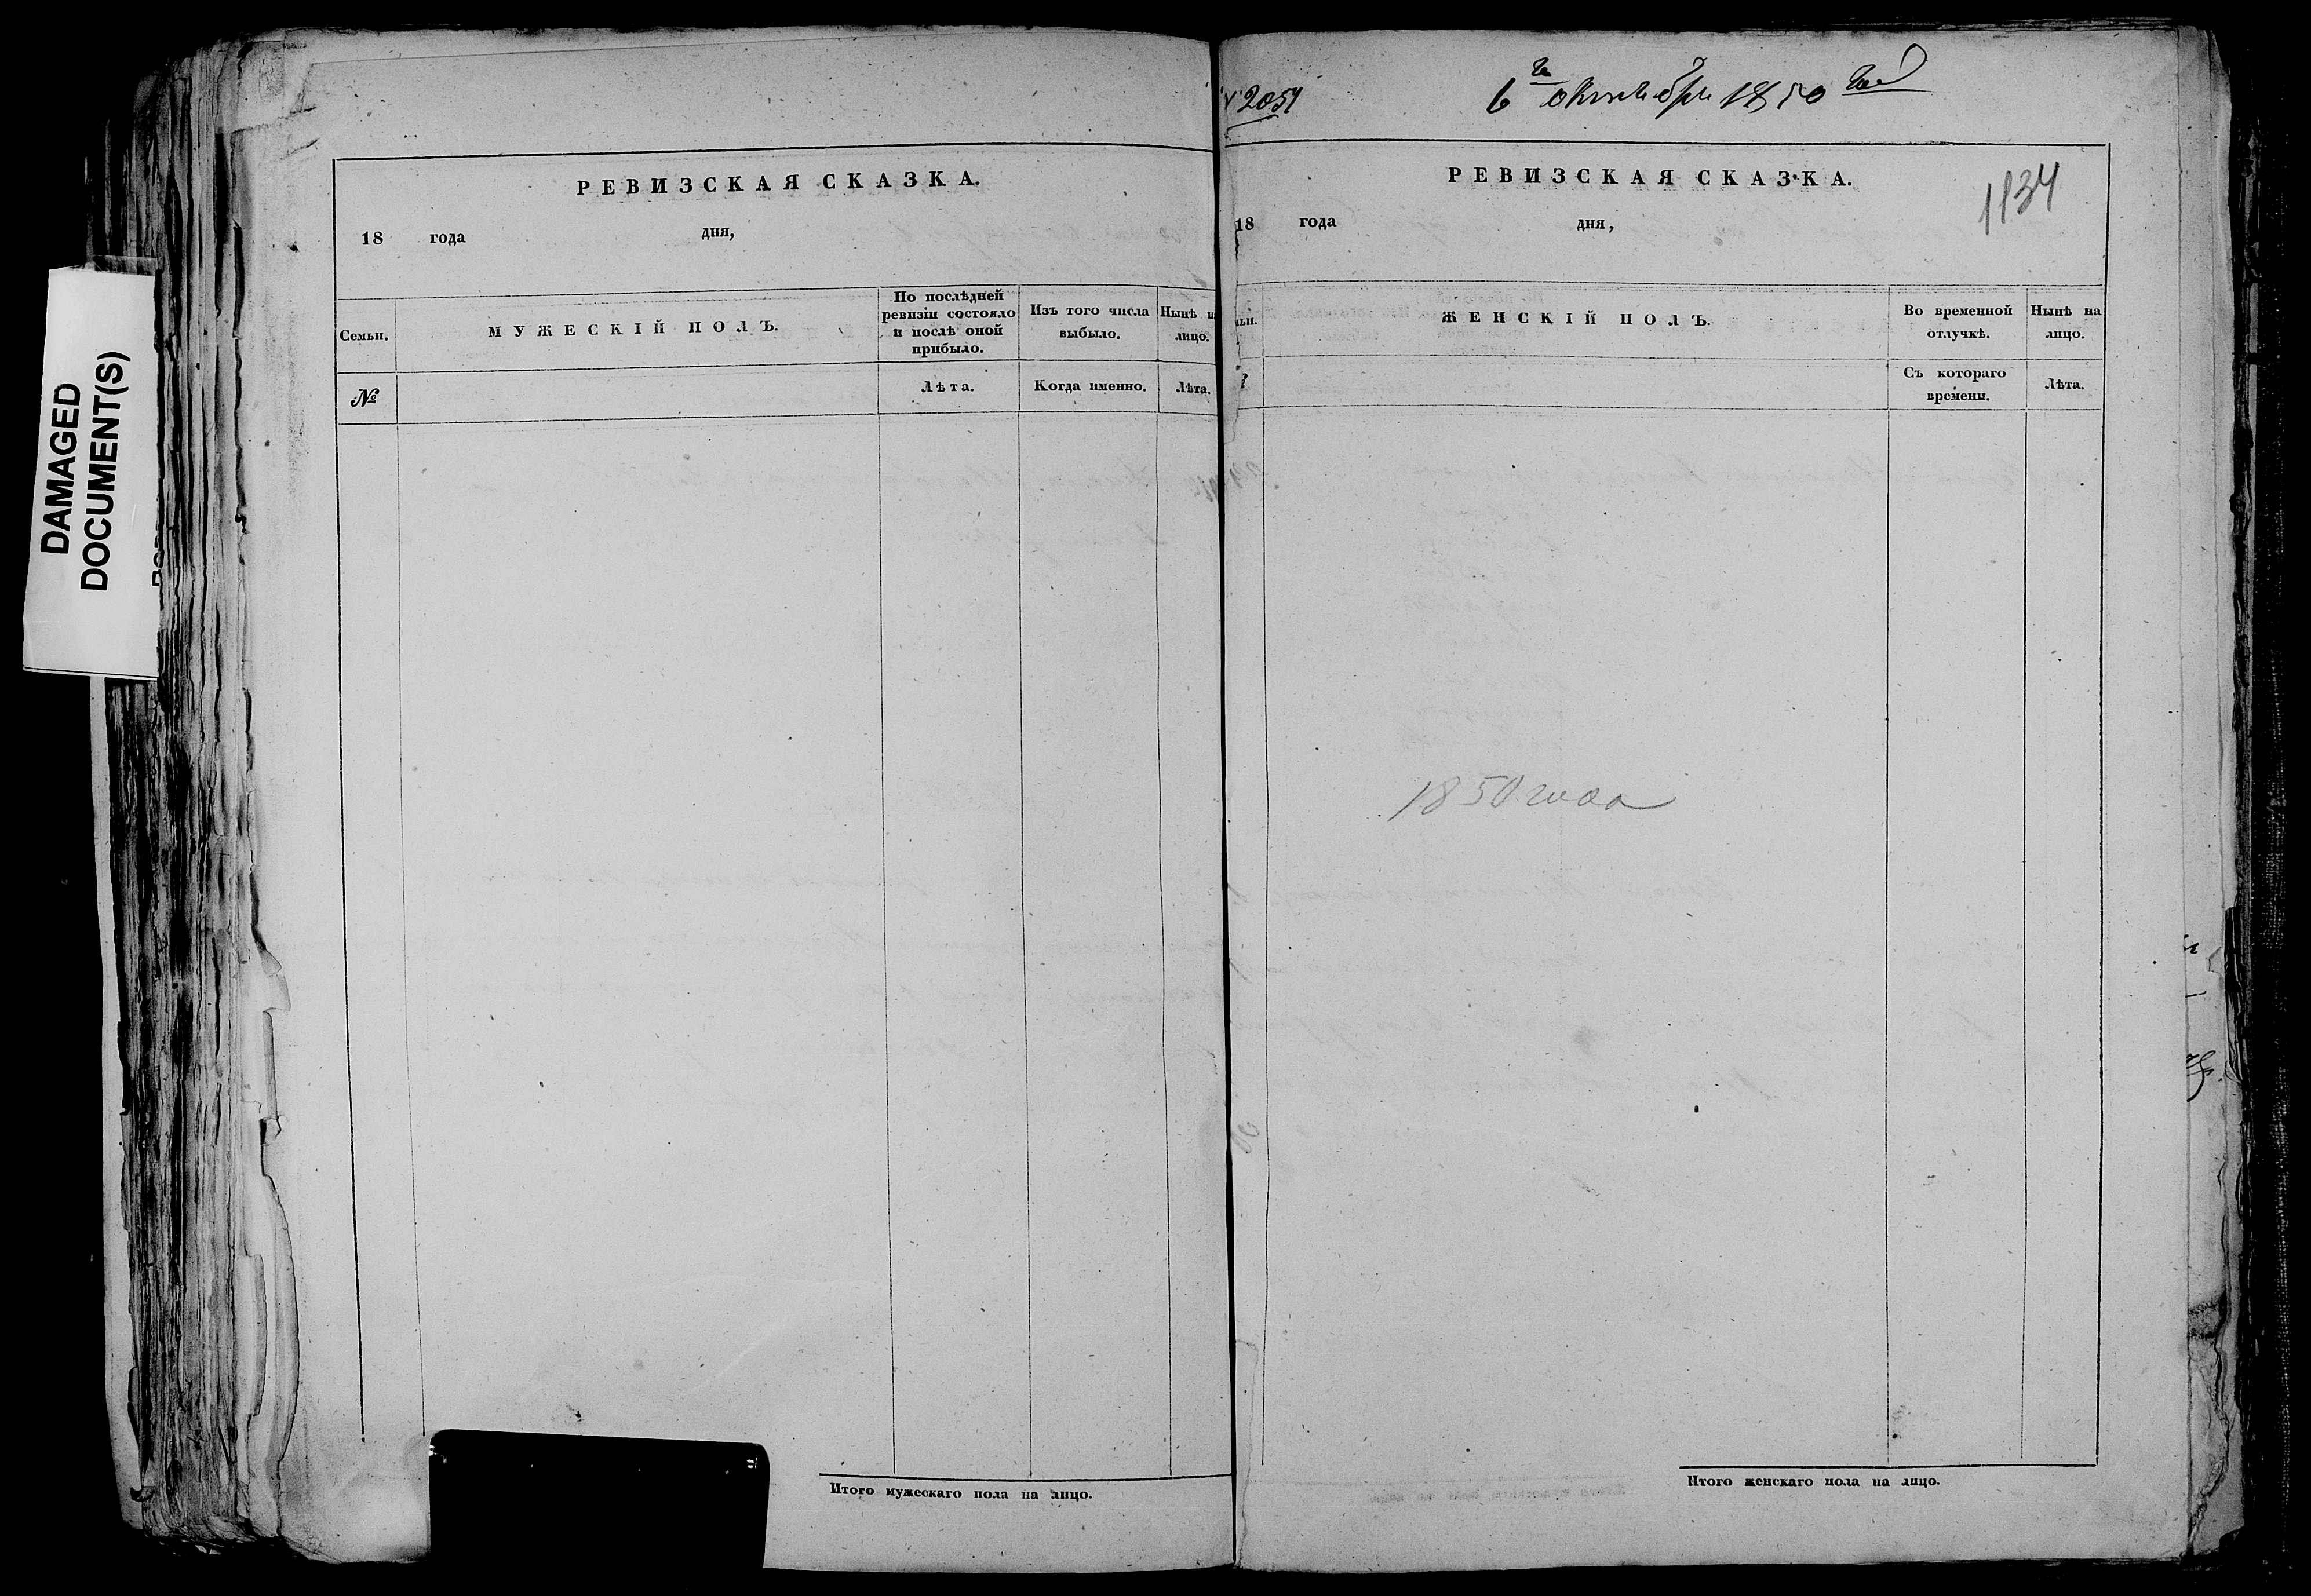 DAMAGED
DOCUMENT(S)
РЕВИЗСКАЯ СКАЗКА.
18 года дня,
Семьи.
МУЖЕСКІЙ ПОЛЪ.
По послѣдней
ревизіи состояло
и послѣ оной
прибыло.
Изъ того числа
выбыло.
Нынѣ
лицо.
№
Лѣта.
Когда именно.
Лѣта.
Итого мужескаго пола на лицо.
2051
6го октября 1850 года
РЕВИЗСКАЯ СКАЗКА.
1134
18 года дня,
ЖЕНСКІЙ ПОЛЪ.
Во временной
отлучкѣ.
Нынѣ на
лицо.
Съ котораго
времени.
Лѣта.
1850 года
Итого женскаго пола на лицо.